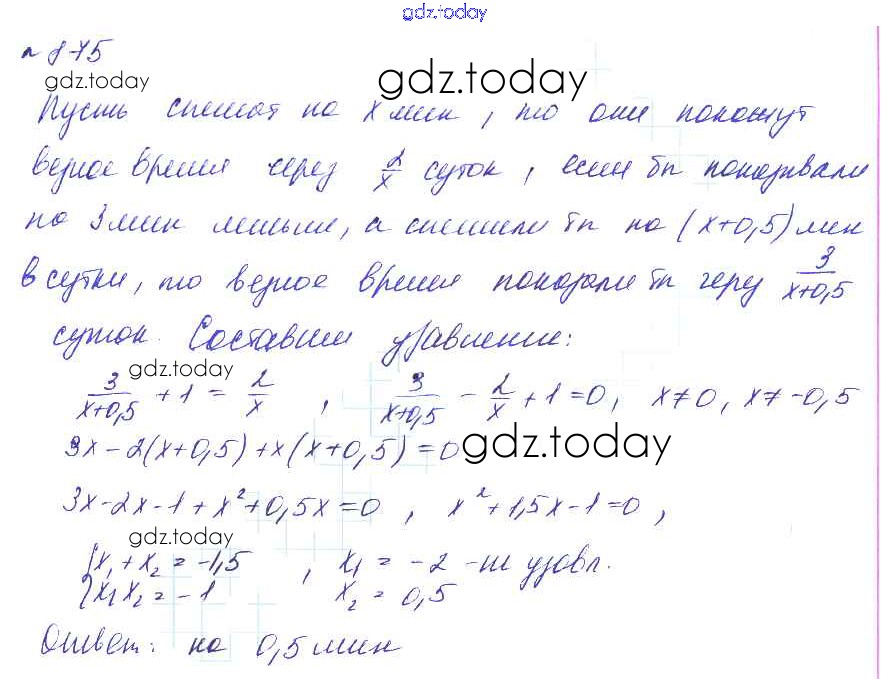 gdz.today
№ 875
gdz.today
gdz.today
Пусть спешат на x мин, то они покажут
верное время через 2/x суток, если бы показывали
на 3 мин меньше, а спешили бы на (x+0,5) мин
в сутки, то верное время показали бы через 3/(x+0,5)
суток. Составим уравнение:
gdz.today
3/(x+0,5) + 1 = 2/x , 3/(x+0,5) - 2/x + 1 = 0, x≠0, x≠-0,5
3x-2(x+0,5)+x(x+0,5)=0
gdz.today
3x-2x-1+x²+0,5x=0 , x²+1,5x-1=0 ,
gdz.today
{x₁+x₂=-1,5 , x₁ = -2 -не удовл.
{x₁x₂=-1 x₂ = 0,5
gdz.today
Ответ: на 0,5 мин